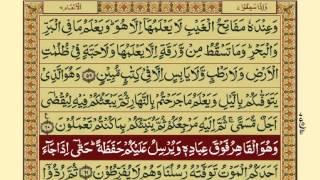 وَعِنْدَهٗ مَفَاتِحُ الْغَيْبِ لَا يَعْلَمُهَاۤ اِلَّا هُوَ ؕ وَيَعْلَمُ مَا فِي الْبَرِّ
وَالْبَحْرِ ؕ وَمَا تَسْقُطُ مِنْ وَّرَقَةٍ اِلَّا يَعْلَمُهَا وَلَا حَبَّةٍ فِيْ ظُلُمٰتِ
الْاَرْضِ وَلَا رَطْبٍ وَّلَا يَابِسٍ اِلَّا فِيْ كِتٰبٍ مُّبِيْنٍ ۝۵۹ وَهُوَ الَّذِيْ
يَتَوَفّٰىكُمْ بِالَّيْلِ وَيَعْلَمُ مَا جَرَحْتُمْ بِالنَّهَارِ ثُمَّ يَبْعَثُكُمْ فِيْهِ لِيُقْضٰۤى
اَجَلٌ مُّسَمًّى ۚ ثُمَّ اِلَيْهِ مَرْجِعُكُمْ ثُمَّ يُنَبِّئُكُمْ بِمَا كُنْتُمْ تَعْمَلُوْنَ ۝۶۰
وَهُوَ الْقَاهِرُ فَوْقَ عِبَادِهٖ وَيُرْسِلُ عَلَيْكُمْ حَفَظَةً ؕ حَتّٰۤى اِذَا جَآءَ
اَحَدَكُمُ الْمَوْتُ تَوَفَّتْهُ رُسُلُنَا وَهُمْ لَا يُفَرِّطُوْنَ ۝۶۱ ثُمَّ رُدُّوْۤا